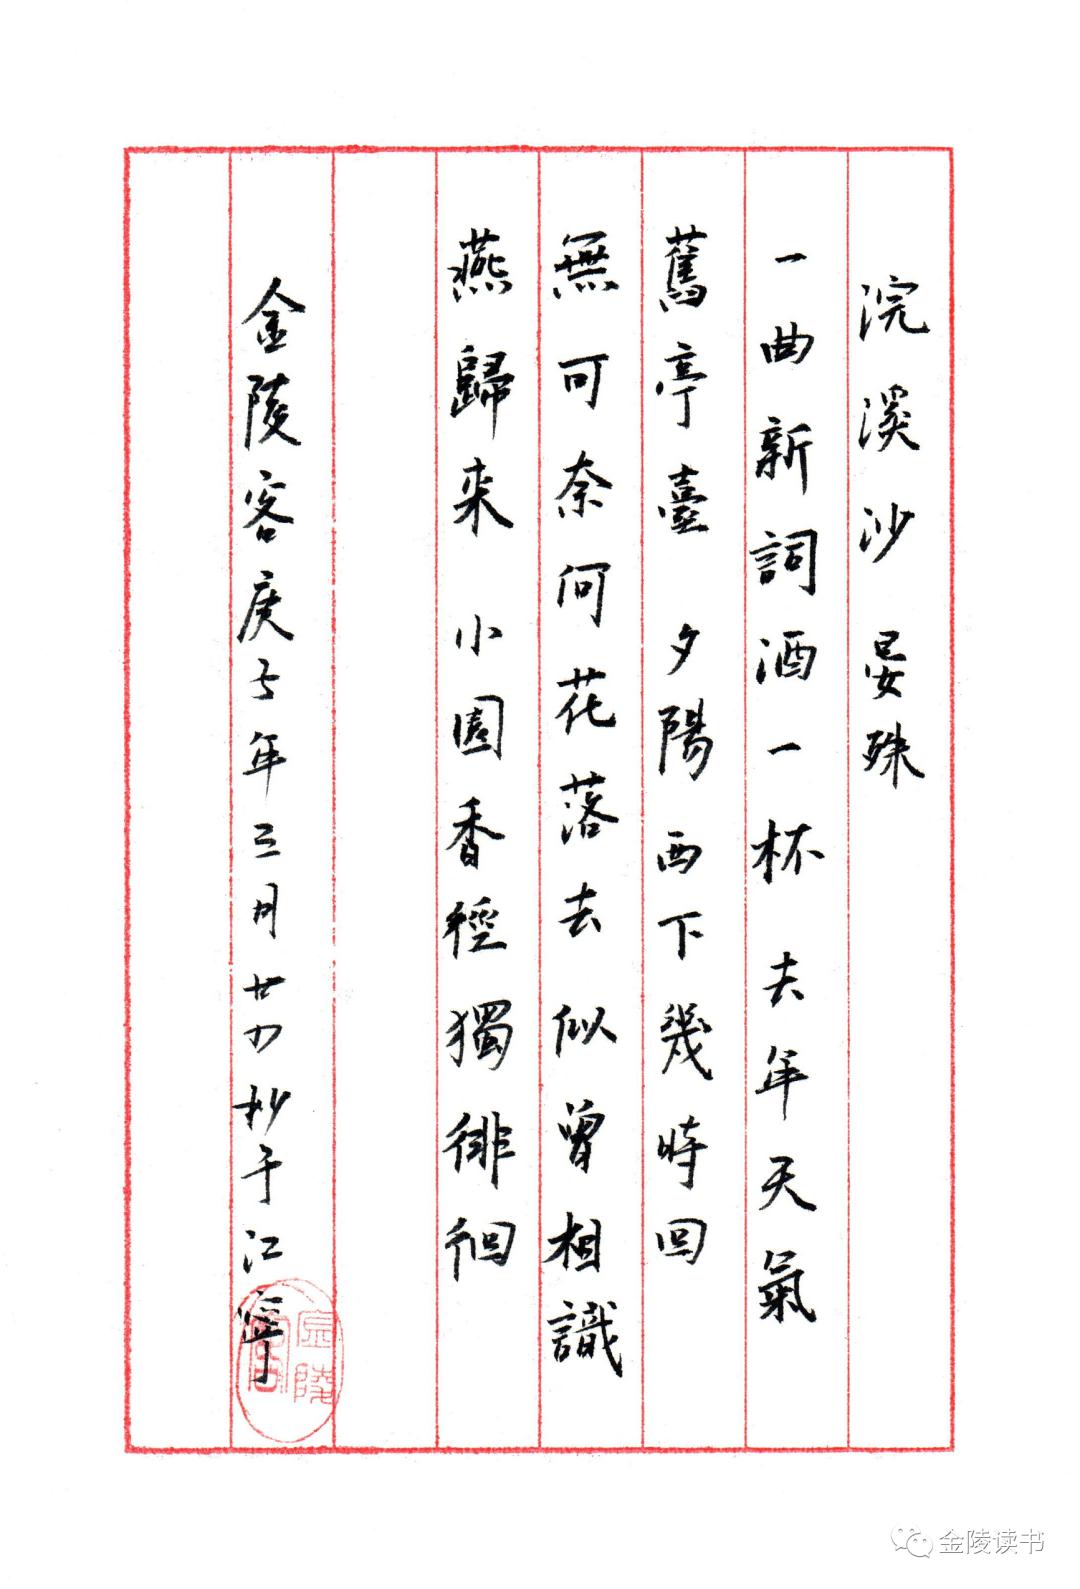 浣溪沙 晏殊
一曲新詞酒一杯 去年天氣
舊亭臺 夕陽西下幾時回
無可奈何花落去 似曾相識
燕歸来 小園香徑獨徘徊
金陵客庚子年三月廿九抄于江寧
金陵客
金陵读书